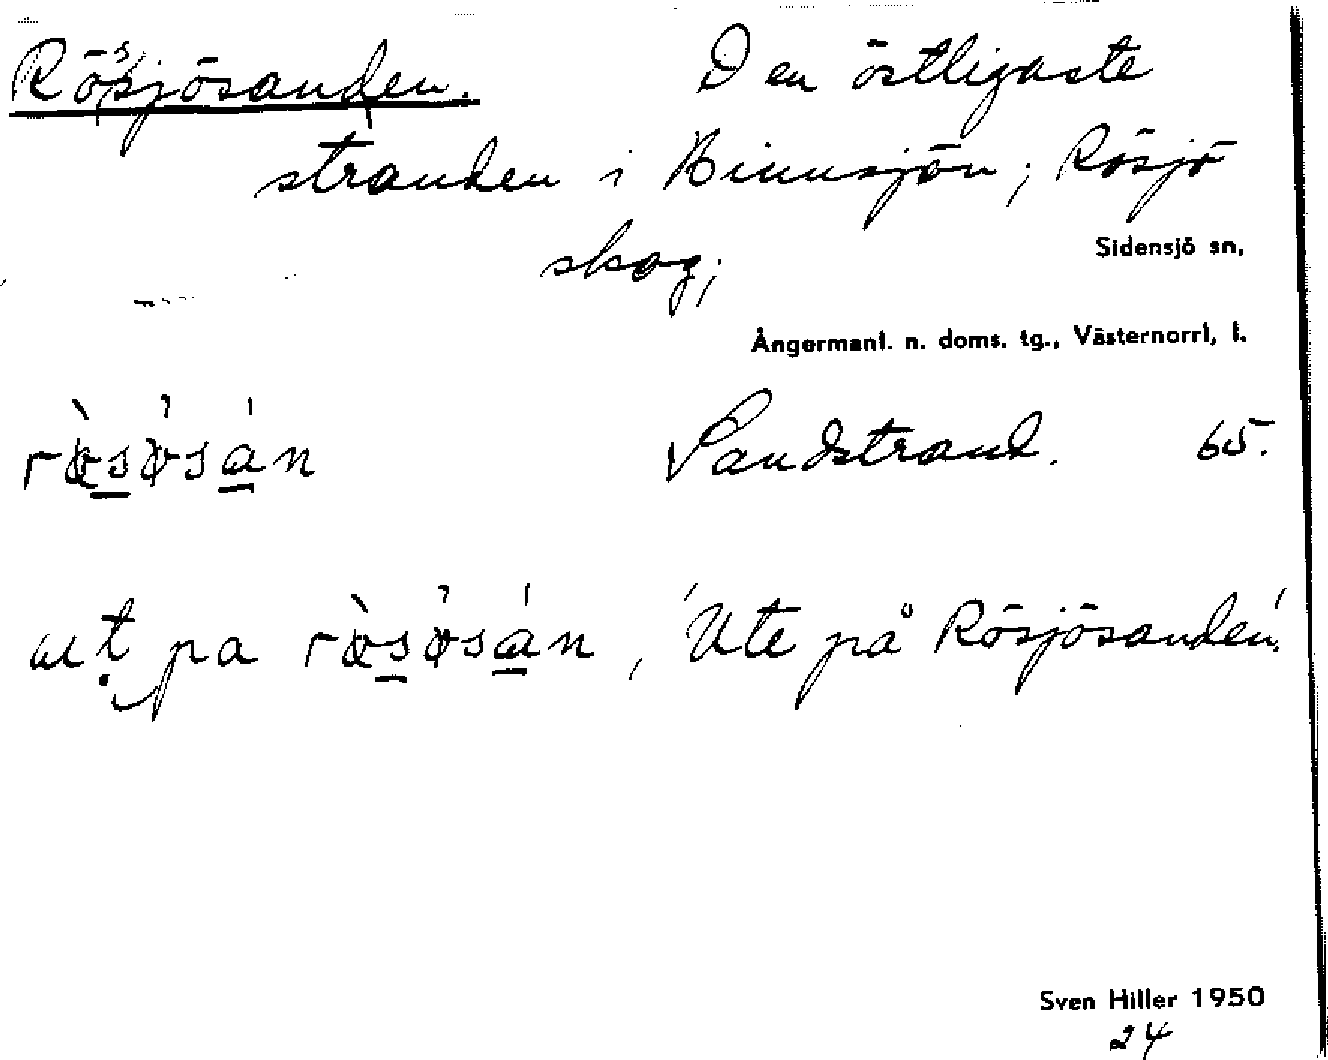 Rösjösanden. Den östligaste
stranden i Hinnsjön; Rösjö
skog;
Sidensjö sn,
Ångermanl. n. doms. tg., Västernorrl, l.
Sandstrand. 65.
pa , 'Ute på Rösjösanden'.
Sven Hiller 1950
24